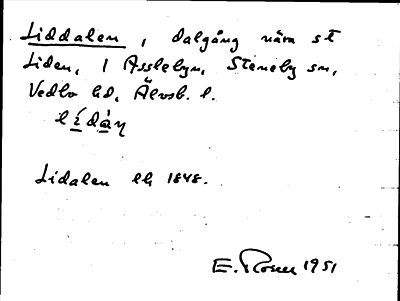 Liddalen, dalgång nära st
Liden, 1 Asslebyn, Steneby sn,
Vedbo hd, Älvsb. l.
lídàn
Lidalen lh 1848.
E. Rosell 1951